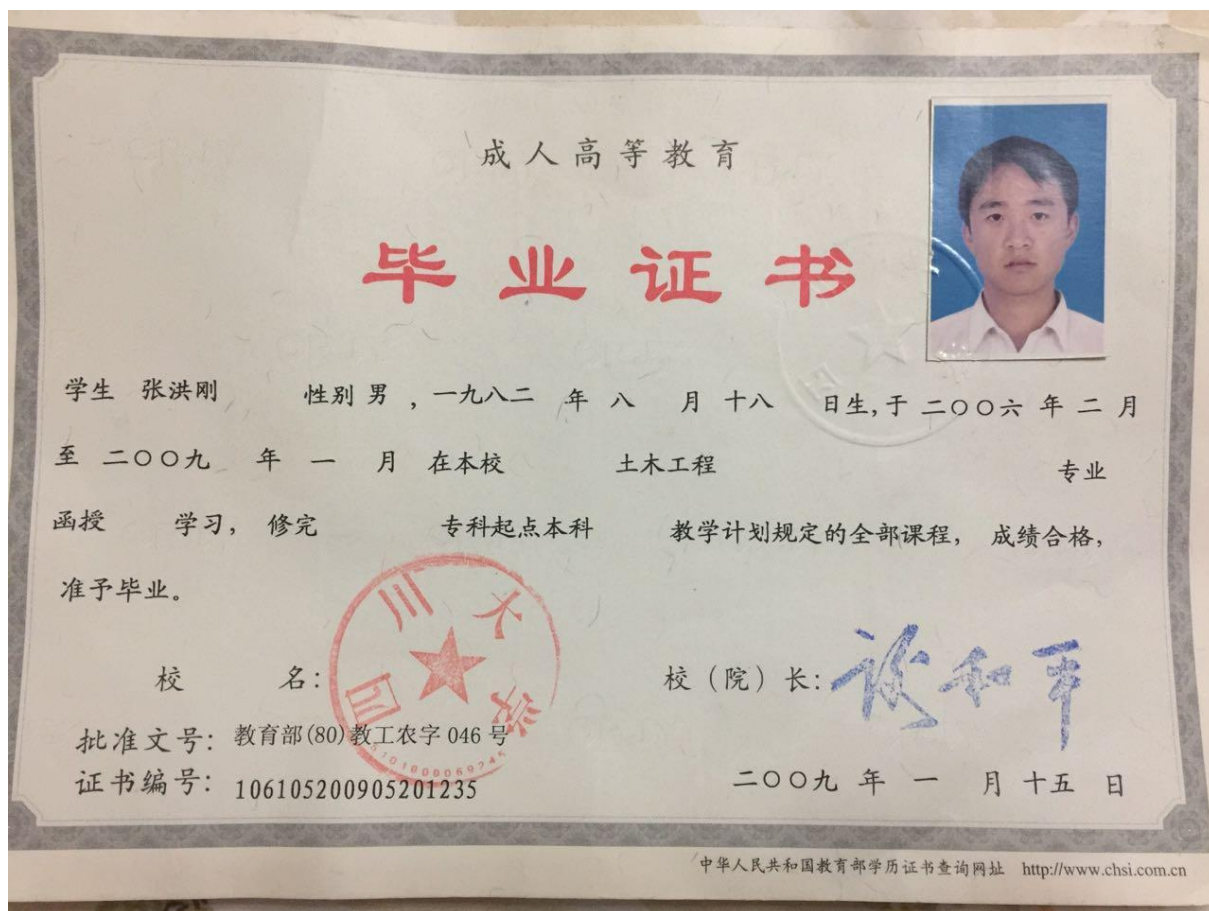 成人高等教育
毕业证书
学生 张洪刚 性别 男 , 一九八二 年 八 月 十八 日生, 于 二〇〇六 年 二 月
至 二〇〇九 年 一 月 在本校 土木工程 专业
函授 学习, 修完 专科起点本科 教学计划规定的全部课程, 成绩合格,
准予毕业。
四川大学
校 名: 校（院）长: 谢和平
批准文号: 教育部(80)教工农字 046 号
证书编号: 106105200905201235
二〇〇九 年 一 月 十五 日
中华人民共和国教育部学历证书查询网址 http://www.chsi.com.cn